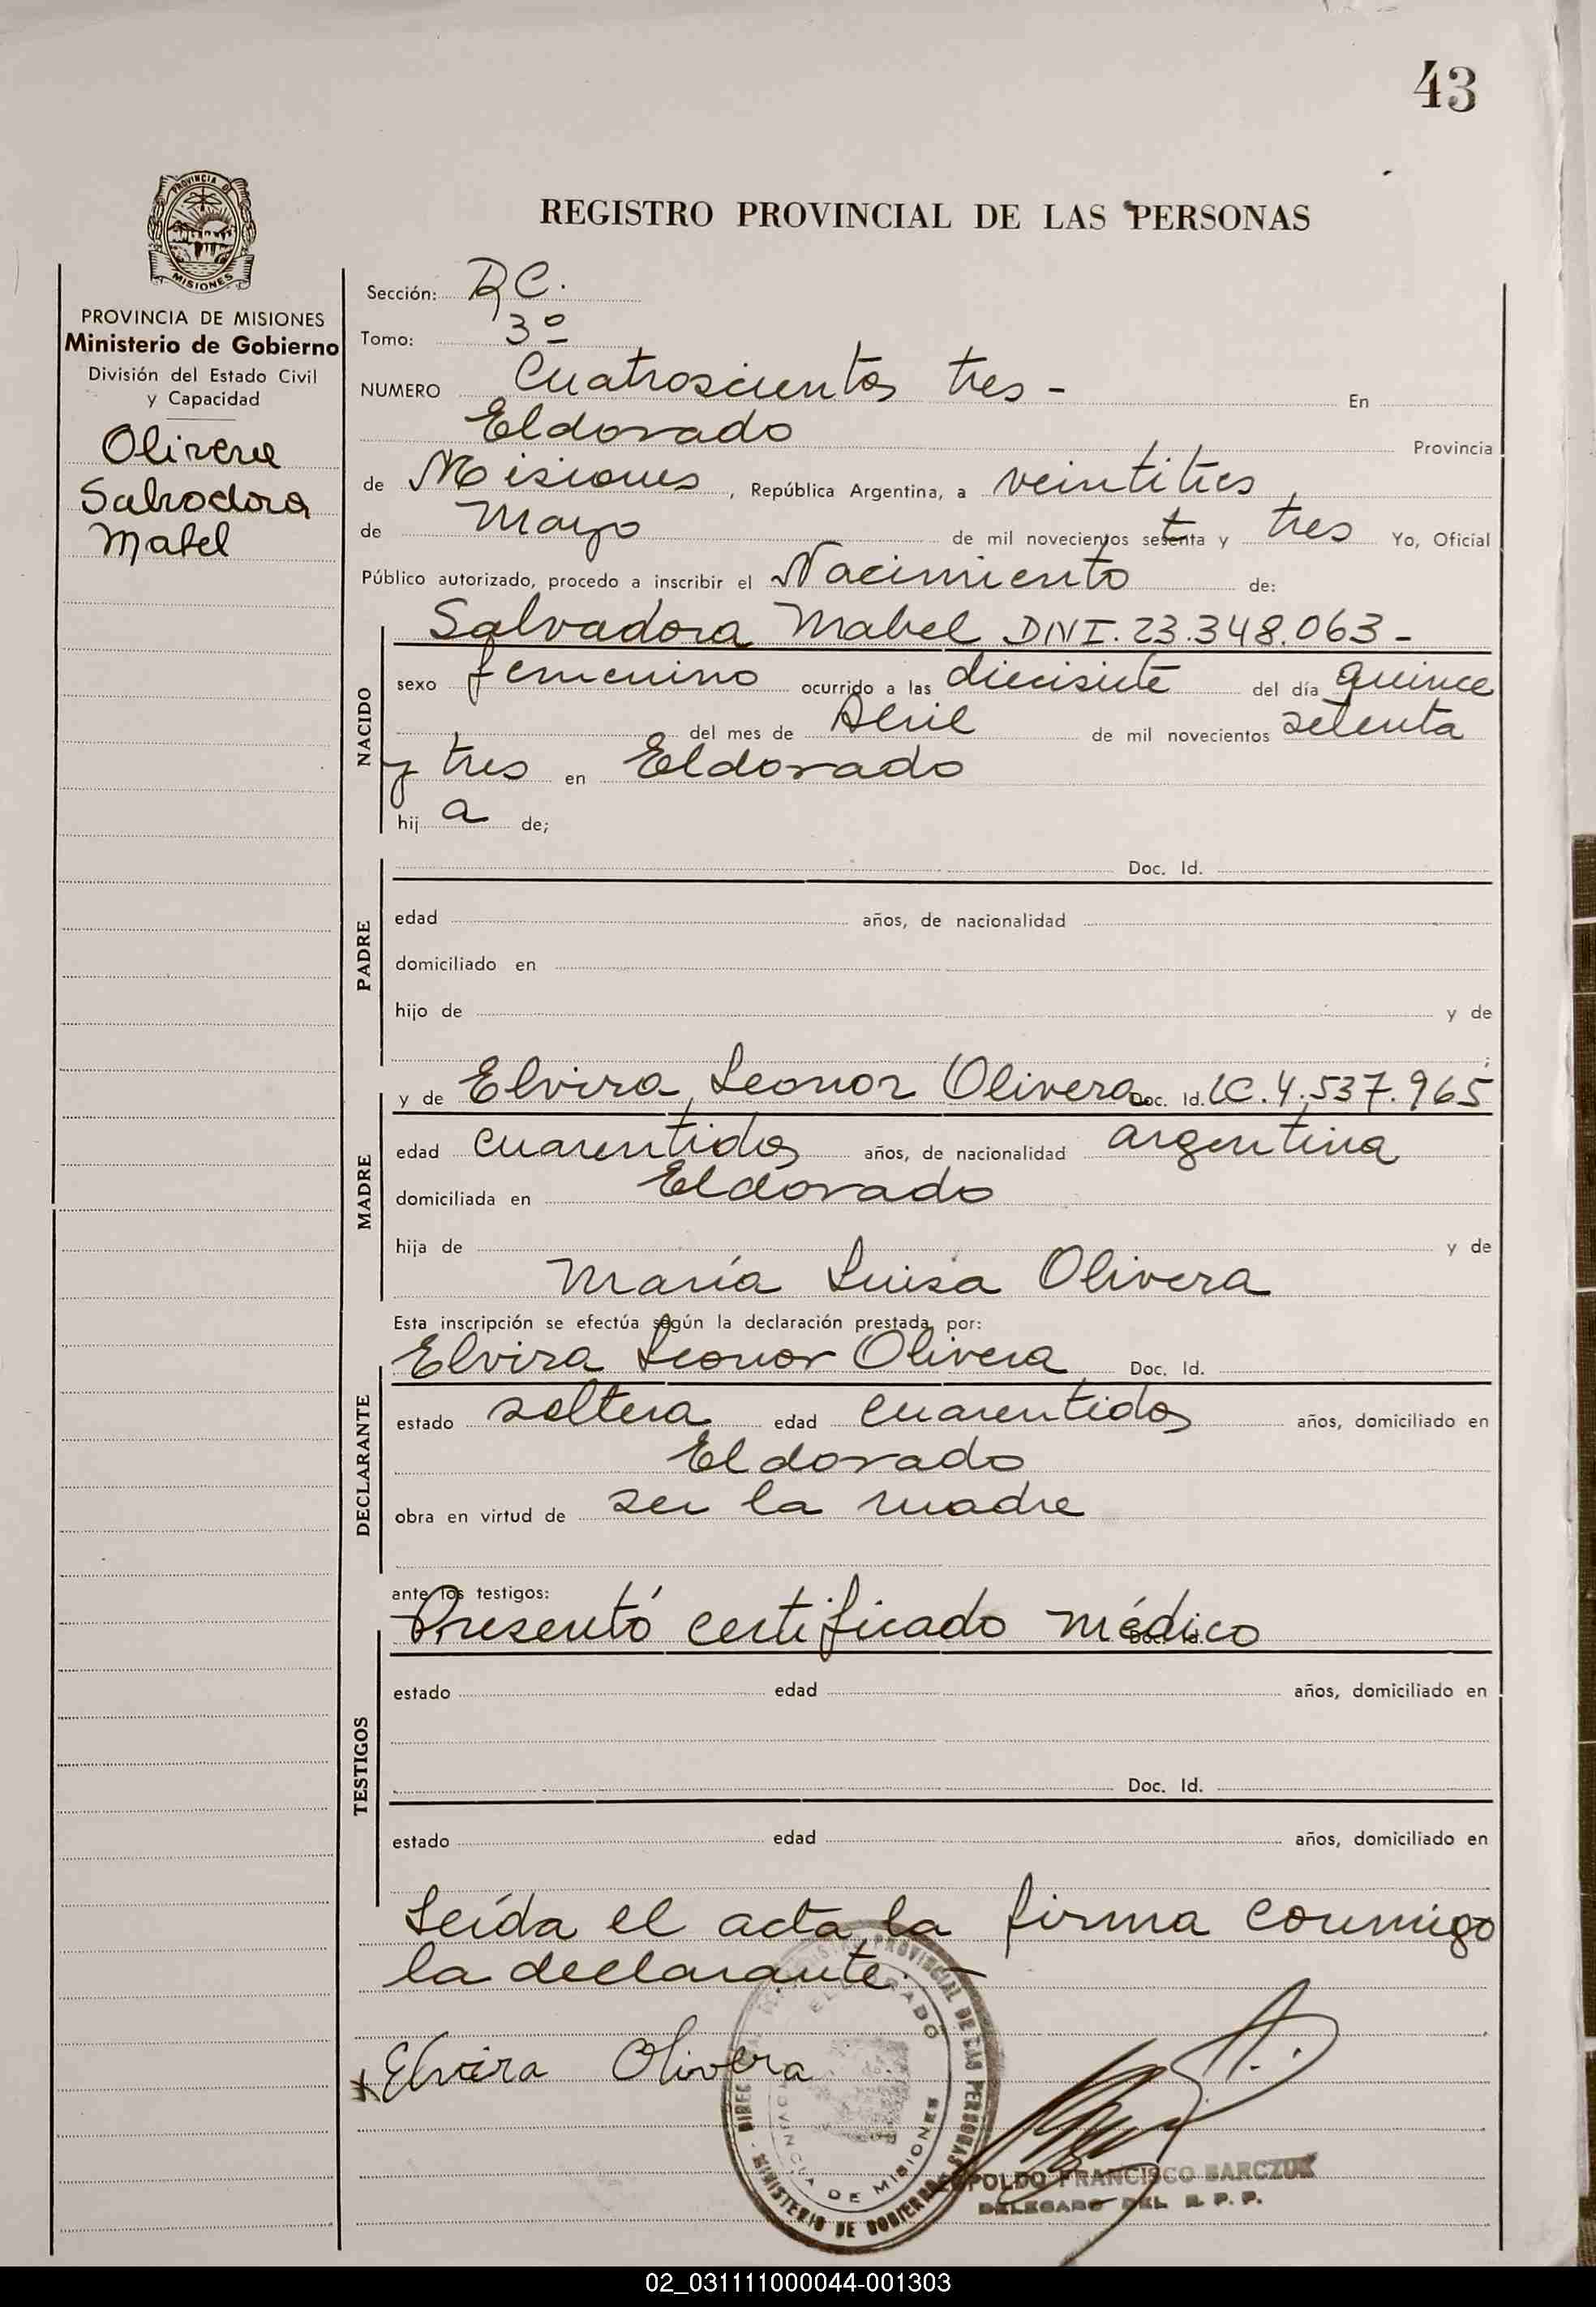 43
PROVINCIA DE
MISIONES
REGISTRO PROVINCIAL DE LAS PERSONAS
PROVINCIA DE MISIONES
Ministerio de Gobierno
División del Estado Civil
y Capacidad
Olivera
Salvadora
Mabel
Sección: R C.
Tomo: 3º
NUMERO Cuatroscientos tres - En
Eldorado Provincia
de Misiones, República Argentina, a veintitres
de Mayo de mil novecientos setenta y tres Yo, Oficial
Público autorizado, procedo a inscribir el Nacimiento de:
Salvadora Mabel DNI. 23.348.063-
NACIDO
sexo femenino ocurrido a las diecisiete del día quince
del mes de Abril de mil novecientos setenta
y tres en Eldorado
hij a de;
Doc. Id.
PADRE
edad años, de nacionalidad
domiciliado en
hijo de y de
y de Elvira Leonor Olivera Doc. Id. LC. 4.537.965
MADRE
edad cuarentidos años, de nacionalidad argentina
domiciliada en Eldorado
hija de y de
María Luisa Olivera
Esta inscripción se efectúa según la declaración prestada por:
Elvira Leonor Olivera Doc. Id.
DECLARANTE
estado soltera edad cuarentidos años, domiciliado en
Eldorado
obra en virtud de ser la madre
ante los testigos:
Presentó certificado médico Doc. Id.
TESTIGOS
estado edad años, domiciliado en
Doc. Id.
estado edad años, domiciliado en
Leída el acta la firma conmigo
la declarante.-
Elvira Olivera
REGISTRO PROVINCIAL DE LAS PERSONAS
ELDORADO
PROVINCIA DE MISIONES
MINISTERIO DE GOBIERNO
LEOPOLDO FRANCISCO BARCZUK
DELEGADO DEL R. P. P.
02_031111000044-001303